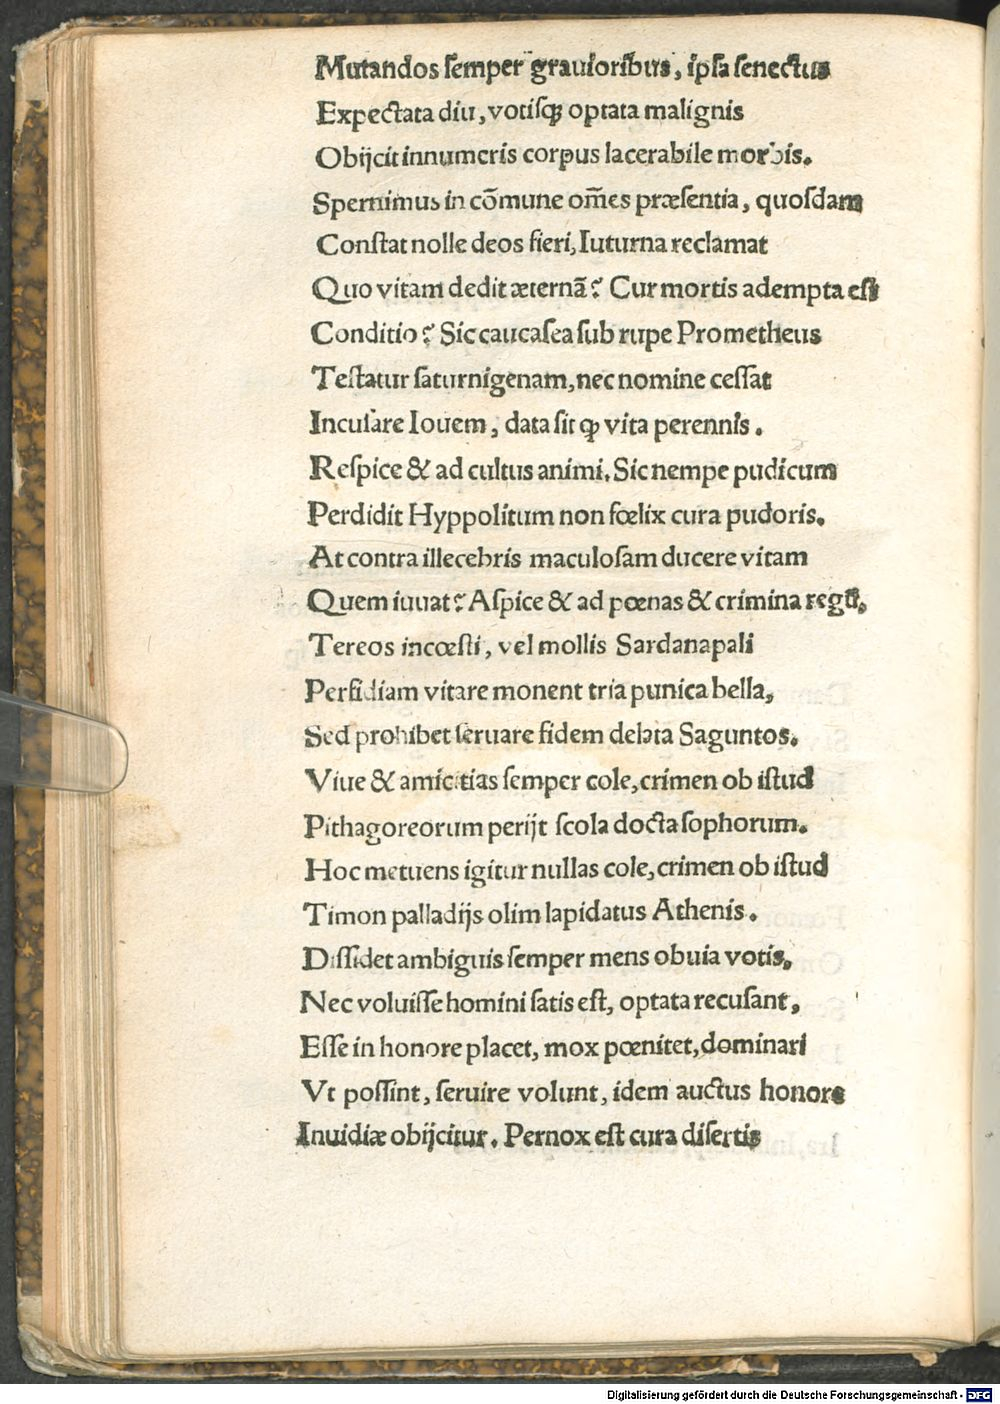 Mutandos ſemper grauioribus, ipſa ſenectus
Expectata diu, votiſqꝫ optata malignis
Obijcit innumeris corpus lacerabile morbis.
Spernimus in cōmune om̄es præſentia, quoſdam
Conſtat nolle deos fieri, Iuturna reclamat
Quo vitam dedit æternā? Cur mortis adempta eſt
Conditio? Sic caucaſea ſub rupe Prometheus
Teſtatur ſaturnigenam, nec nomine ceſſat
Incuſare Iouem, data ſit ꝙ vita perennis.
Reſpice & ad cultus animi. Sic nempe pudicum
Perdidit Hyppolitum non fœlix cura pudoris.
At contra illecebris maculoſam ducere vitam
Quem iuuat? Aſpice & ad pœnas & crimina regū.
Tereos incœſti, vel mollis Sardanapali
Perfidiam vitare monent tria punica bella,
Sed prohibet ſeruare fidem deleta Saguntos.
Viue & amicitias ſemper cole, crimen ob iſtud
Pithagoreorum perijt ſcola docta ſophorum.
Hoc metuens igitur nullas cole, crimen ob iſtud
Timon palladijs olim lapidatus Athenis.
Diſſidet ambiguis ſemper mens obuia votis.
Nec voluiſſe homini ſatis eſt, optata recuſant,
Eſſe in honore placet, mox pœnitet, dominari
Vt poſſint, ſeruire volunt, idem auctus honore
Inuidiæ obijcitur. Pernox eſt cura diſertis
Digitalisierung gefördert durch die Deutsche Forschungsgemeinschaft - DFG